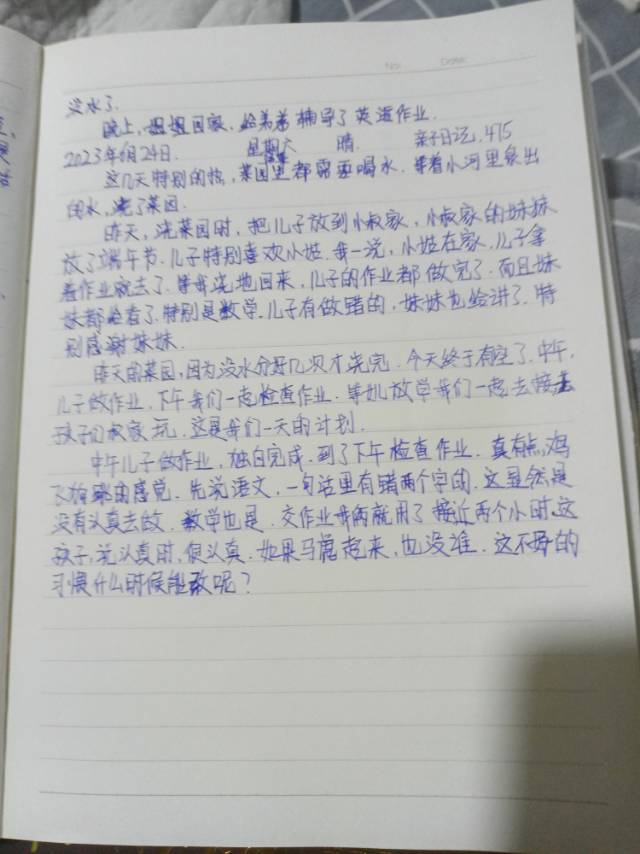 No.  Date.
没水了.
晚上,姐姐回家,给弟弟辅导了英语作业.
2023年6月24日. 星期六 晴. 亲子日记.475
这几天特别的热,菜园里都需要喝水.等着小河里来出
的水,浇了菜园.
昨天,浇菜园时,把儿子放到小叔家,小叔家的妹妹
放了端午节.儿子特别喜欢小妹.我一说,小妹在家.儿子拿
着作业就去了.等我浇地回来,儿子的作业都做完了.而且妹
妹都给看了.特别是数学.儿子有做错的,妹妹也给讲了.特
别感谢妹妹.
昨天的菜园,因为没水分好几次才浇完.今天终于有空了.中午,
儿子做作业.下午我们一起检查作业.等她放学我们一起去接
孩子们叔家玩.这是我们一天的计划.
中午儿子做作业,独自完成.到了下午检查作业.真有点,鸡
飞狗跳的感觉.先说语文,一句话里有错两个字的.这显然是
没有认真去做.数学也是.交作业我两就用了接近两个小时.这
孩子,说认真时,很认真.如果马虎起来,也没谁.这不好的
习惯什么时候能改呢?